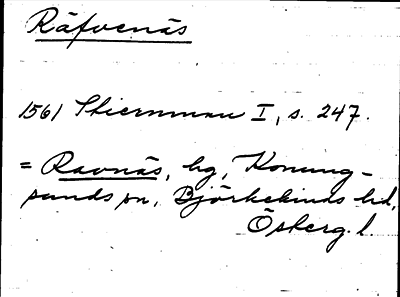 Räfvenäs
1561 Stiernman I, s. 247.
= Ravnäs, hg, Konung-
sunds sn, Björkekinds hd,
Österg. l.